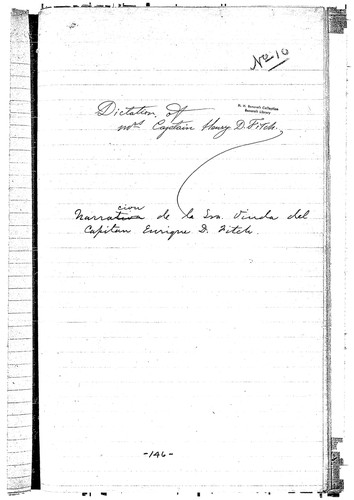 No 10
Dictation of
Mrs Captain Henry D. Fitch.
H. H. Bancroft Collection
Bancroft Library
cion
Narrativa de la Sra. Viuda del
Capitan Enrique D. Fitch.
-146-